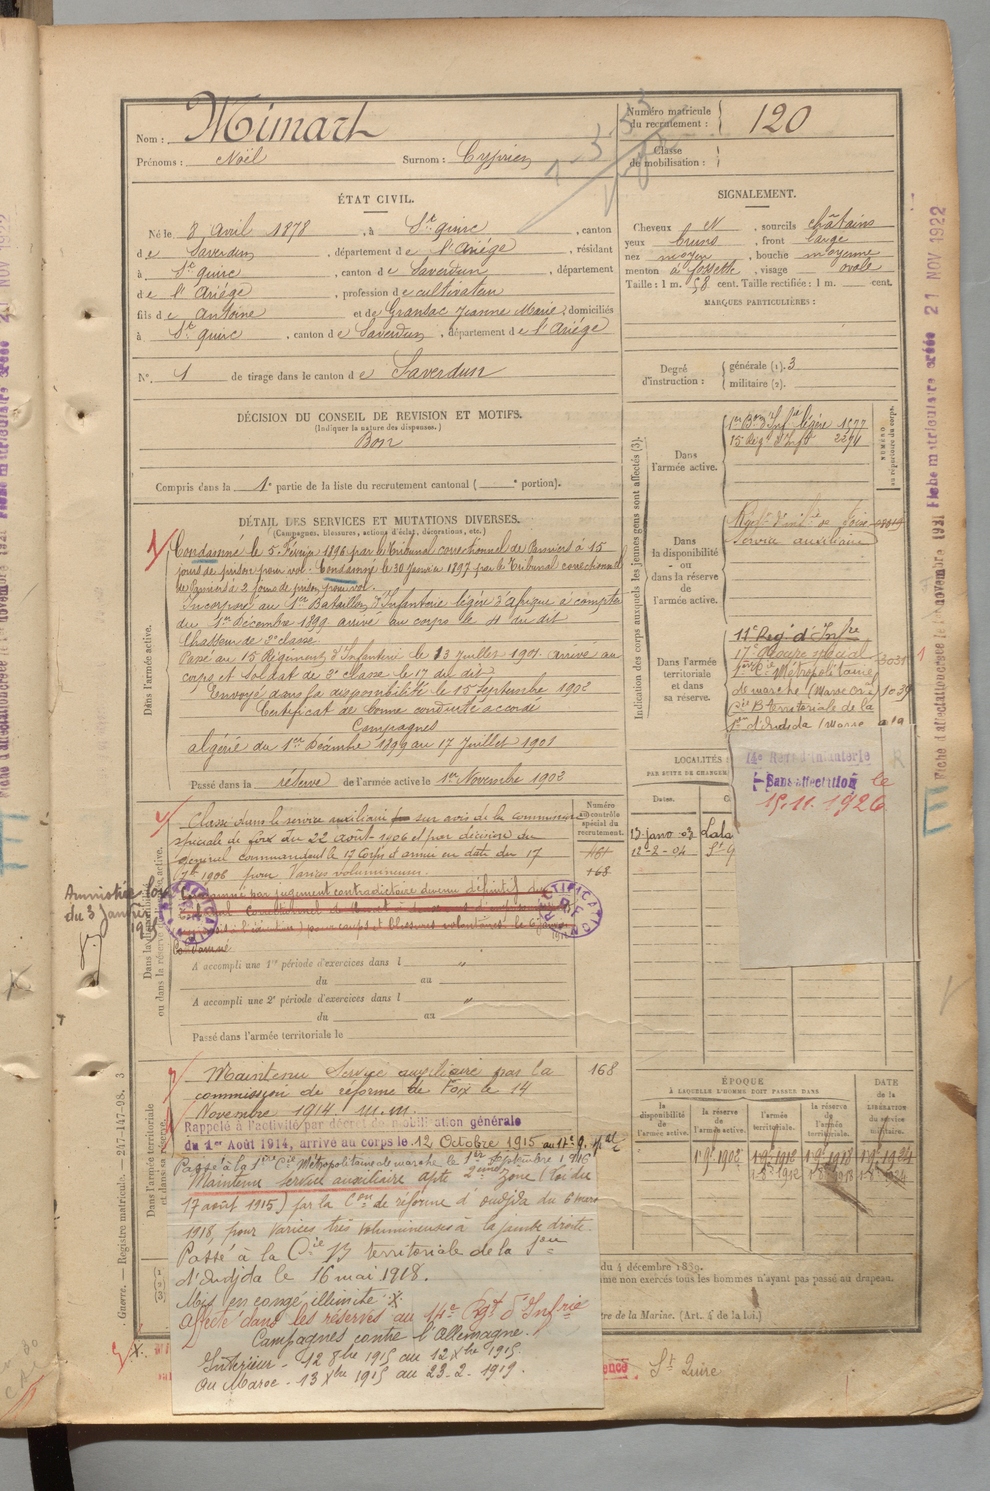 Nom : Mimart
Prénoms : Noël Surnom : Cyprien
Numéro matricule du recrutement : 120
Classe de mobilisation :
ÉTAT CIVIL.
Né le 8 Avril 1878, à St Quirc, canton
de Saverdun, département de l'Ariège, résidant
à St Quirc, canton de Saverdun, département
de l'Ariège, profession de cultivateur
fils de Antoine et de Gransac Jeanne Marie, domiciliés
à St Quirc, canton de Saverdun, département de l'Ariège
N° 1 de tirage dans le canton de Saverdun
DÉCISION DU CONSEIL DE REVISION ET MOTIFS.
(Indiquer la nature des dispenses.)
Bon
Compris dans la 1e partie de la liste du recrutement cantonal ( e portion).
SIGNALEMENT.
Cheveux N, sourcils châtains
yeux bruns, front large
nez moyen, bouche moyenne
menton à fossette, visage ovale
Taille : 1 m. 58 cent. Taille rectifiée : 1 m. cent.
MARQUES PARTICULIÈRES :
Degré d'instruction : générale (1). 3
militaire (2).
DÉTAIL DES SERVICES ET MUTATIONS DIVERSES.
(Campagnes, blessures, actions d'éclat, décorations, etc.)
Dans l'armée active.
Condamné le 5 Février 1896 par le Tribunal correctionnel de Pamiers à 15
jours de prison pour vol. Condamné le 30 Janvier 1897 par le Tribunal correctionnel
de Pamiers à 2 jours de prison pour vol.
Incorporé au 1er Bataillon d'Infanterie légère d'Afrique à compter
du 1er Décembre 1899 arrivé au corps le 4 du dit
Chasseur de 2e classe.
Passé au 15 Régiment d'Infanterie le 13 Juillet 1901 arrivé au
corps et Soldat de 2e Classe le 17 du dit
Envoyé dans la disponibilité le 15 Septembre 1902
Certificat de bonne conduite accordé
Campagnes
Algérie du 1er Décembre 1899 au 17 Juillet 1901
Passé dans la réserve de l'armée active le 1er Novembre 1902
Dans la disponibilité ou dans la réserve de l'armée active.
Classé dans le service auxiliaire sur avis de la commission
spéciale de Foix du 22 Août 1906 et par décision du
général commandant le 17 Corps d'armée en date du 17
7bre 1906 pour Varices volumineuses.
Numéro au contrôle spécial du recrutement.
168
Condamné par jugement contradictoire devenu définitif du
coups et blessures volontaires le 6 janv
condamné
RECTIFICATION
RECTIFICATION
Amnistié loi
du 3 janvier
1925
A accompli une 1re période d'exercices dans l "
du au
A accompli une 2e période d'exercices dans l "
du au
Passé dans l'armée territoriale le
Dans l'armée territoriale et dans sa réserve.
Maintenu Service auxiliaire par la
commission de réforme de Foix le 14
Novembre 1914 m.m.
168
Rappelé à l'activité par décret de mobilisation générale
du 1er Août 1914, arrivé au corps le 12 Octobre 1915 au 17e
Passé à la 1ère Cie Métropolitaine de marche le 1er Septembre 1916
Maintenu service auxiliaire apte 2ème zone (Loi du
17 août 1915) par la Con de réforme d'oudjda du 6 mars
1918, pour varices très volumineuses à la jambe droite.
Passé à la Cie B territoriale de la Son
d'Oudjda le 16 mai 1918.
Mis en congé illimité X.
Affecté dans les réserves au 14e Rgt d'Infrie
Campagnes contre l'Allemagne.
Intérieur - 12 8bre 1915 au 12 Xbre 1915.
au Maroc - 13 Xbre 1915 au 23-2-1919.
Indication des corps auxquels les jeunes gens sont affectés (3).
NUMÉRO au répertoire du corps.
Dans l'armée active.
1er Bon d'Inf légère 1577
15 Rég d'Inf
Dans la disponibilité ou dans la réserve de l'armée active.
Régt d'infie de Foix
Service auxiliaire
Dans l'armée territoriale et dans sa réserve.
11e Reg d'Infre
1ère Cie Métropolitaine
de marche (Maroc Oral)
Cie B Territoriale de la
Son d'Oudjda (Maroc
14e Régt d'Infanterie
Sans affectation le
15.11.1926
LOCALITÉS
PAR SUITE DE CHANGEM
Dates.
13 janv 03
12-2-04
ÉPOQUE
À LAQUELLE L'HOMME DOIT PASSER DANS
la disponibilité de l'armée active.
la réserve de l'armée active.
l'armée territoriale.
la réserve de l'armée territoriale.
DATE de la LIBÉRATION du service militaire.
1-9bre 1902
1-9bre 1912
1-9bre 1918
1-9bre 1924
du 4 décembre 1889.
mme non exercés tous les hommes n'ayant pas passé au drapeau.
tre de la Marine. (Art. 4 de la loi.)
St Quirc
Guerre. — Registre matricule. — 247-147-98. 3
Fiche matriculaire créée 21 NOV 1922
Fiche d'affectation créée le 1er novembre 1931